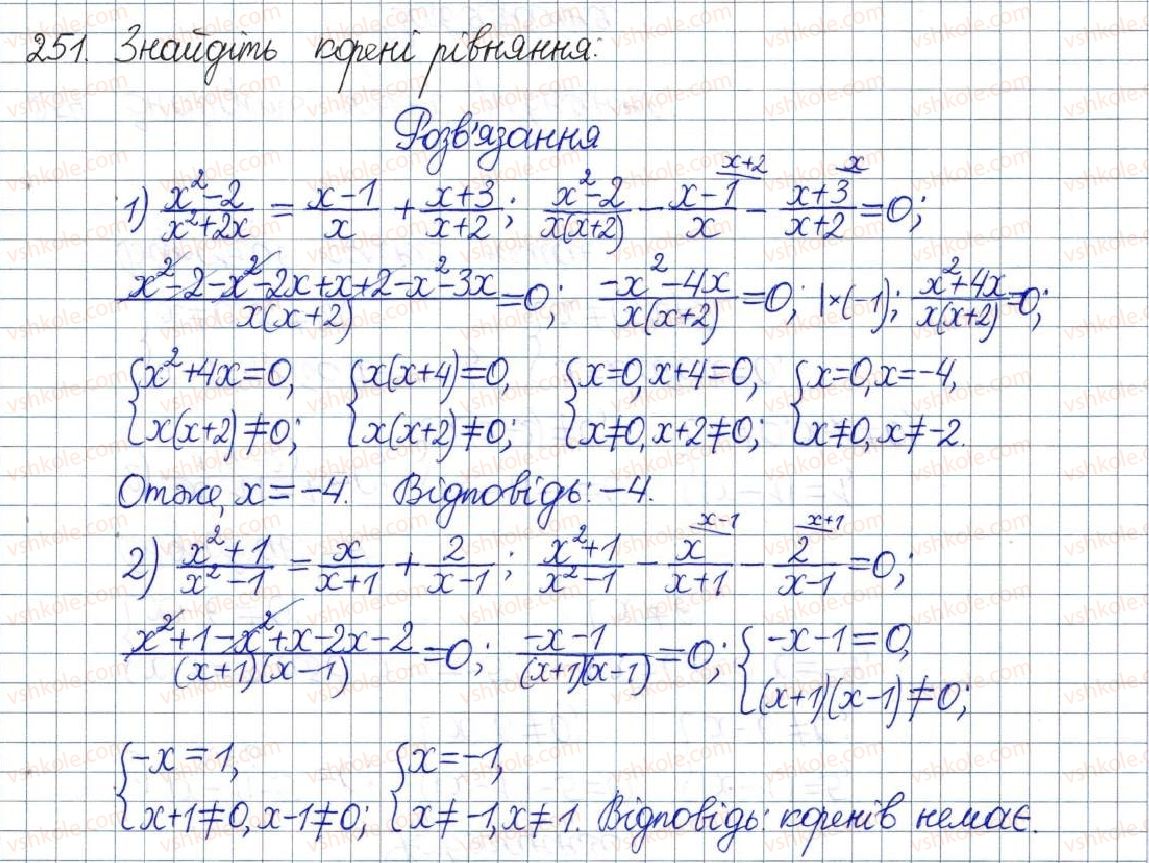 251. Знайдіть корені рівняння:
Розв'язання
1) (x²-2)/(x²+2x) = (x-1)/x + (x+3)/(x+2); (x²-2)/(x(x+2)) - (x-1)/x ^(x+2) - (x+3)/(x+2) ^(x) = 0;
(x²-2-x²-2x+x+2-x²-3x)/(x(x+2)) = 0; (-x²-4x)/(x(x+2)) = 0; |×(-1); (x²+4x)/(x(x+2)) = 0;
{x²+4x=0, {x(x+4)=0, {x=0, x+4=0, {x=0, x=-4,
x(x+2)≠0; x(x+2)≠0; x≠0, x+2≠0; x≠0, x≠-2.
Отже, x=-4. Відповідь: -4.
2) (x²+1)/(x²-1) = x/(x+1) + 2/(x-1); (x²+1)/(x²-1) - x/(x+1) ^(x-1) - 2/(x-1) ^(x+1) = 0;
(x²+1-x²+x-2x-2)/((x+1)(x-1)) = 0; (-x-1)/((x+1)(x-1)) = 0; {-x-1=0,
(x+1)(x-1)≠0;
{-x=1, {x=-1,
x+1≠0, x-1≠0; x≠-1, x≠1. Відповідь: коренів немає.
vshkole.com